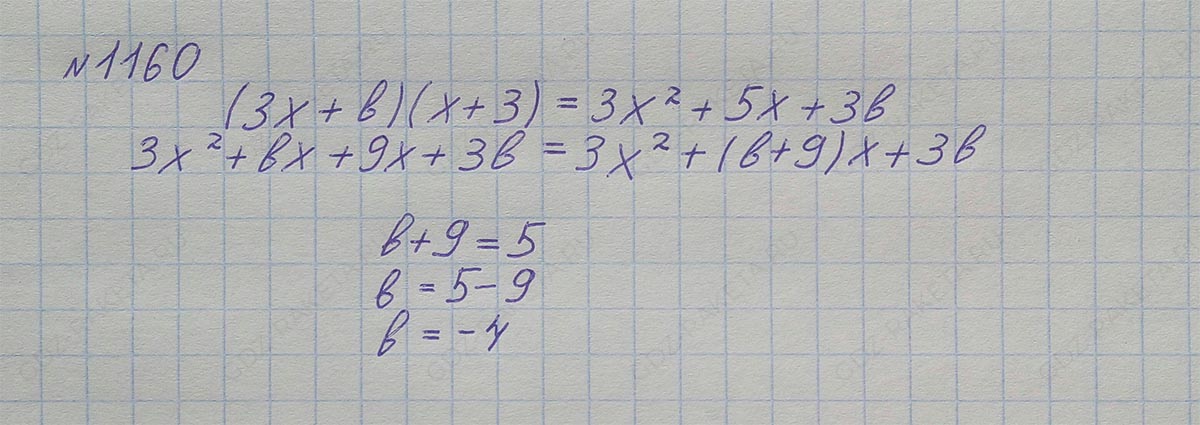 №1160
(3x + в)(x + 3) = 3x² + 5x + 3в
3x² + вx + 9x + 3в = 3x² + (в+9)x + 3в
в + 9 = 5
в = 5 - 9
в = -4